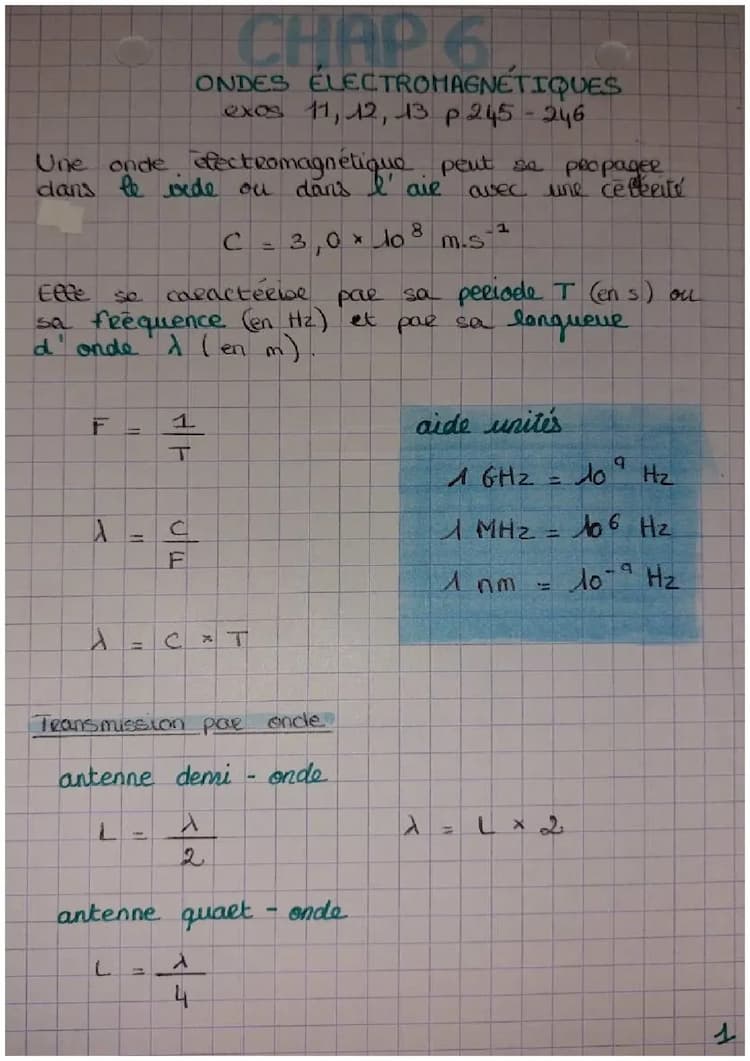 CHAP 6
ONDES ÉLECTROMAGNÉTIQUES
exos 11, 12, 13 p 245 - 246
Une onde électromagnétique peut se propager
dans le vide ou dans l'air avec une célérité
C = 3,0 × 10⁸ m.s⁻¹
Elle se caractérise par sa période T (en s) ou
sa fréequence (en Hz) et par sa longueur
d'onde λ (en m).
F = 1/T
aide unités
1 GHz = 10⁹ Hz
λ = C/F
1 MHz = 10⁶ Hz
1 nm = 10⁻⁹ Hz
λ = C × T
Transmission par onde
antenne demi - onde
L = λ/2
λ = L × 2
antenne quart - onde
L = λ/4
1